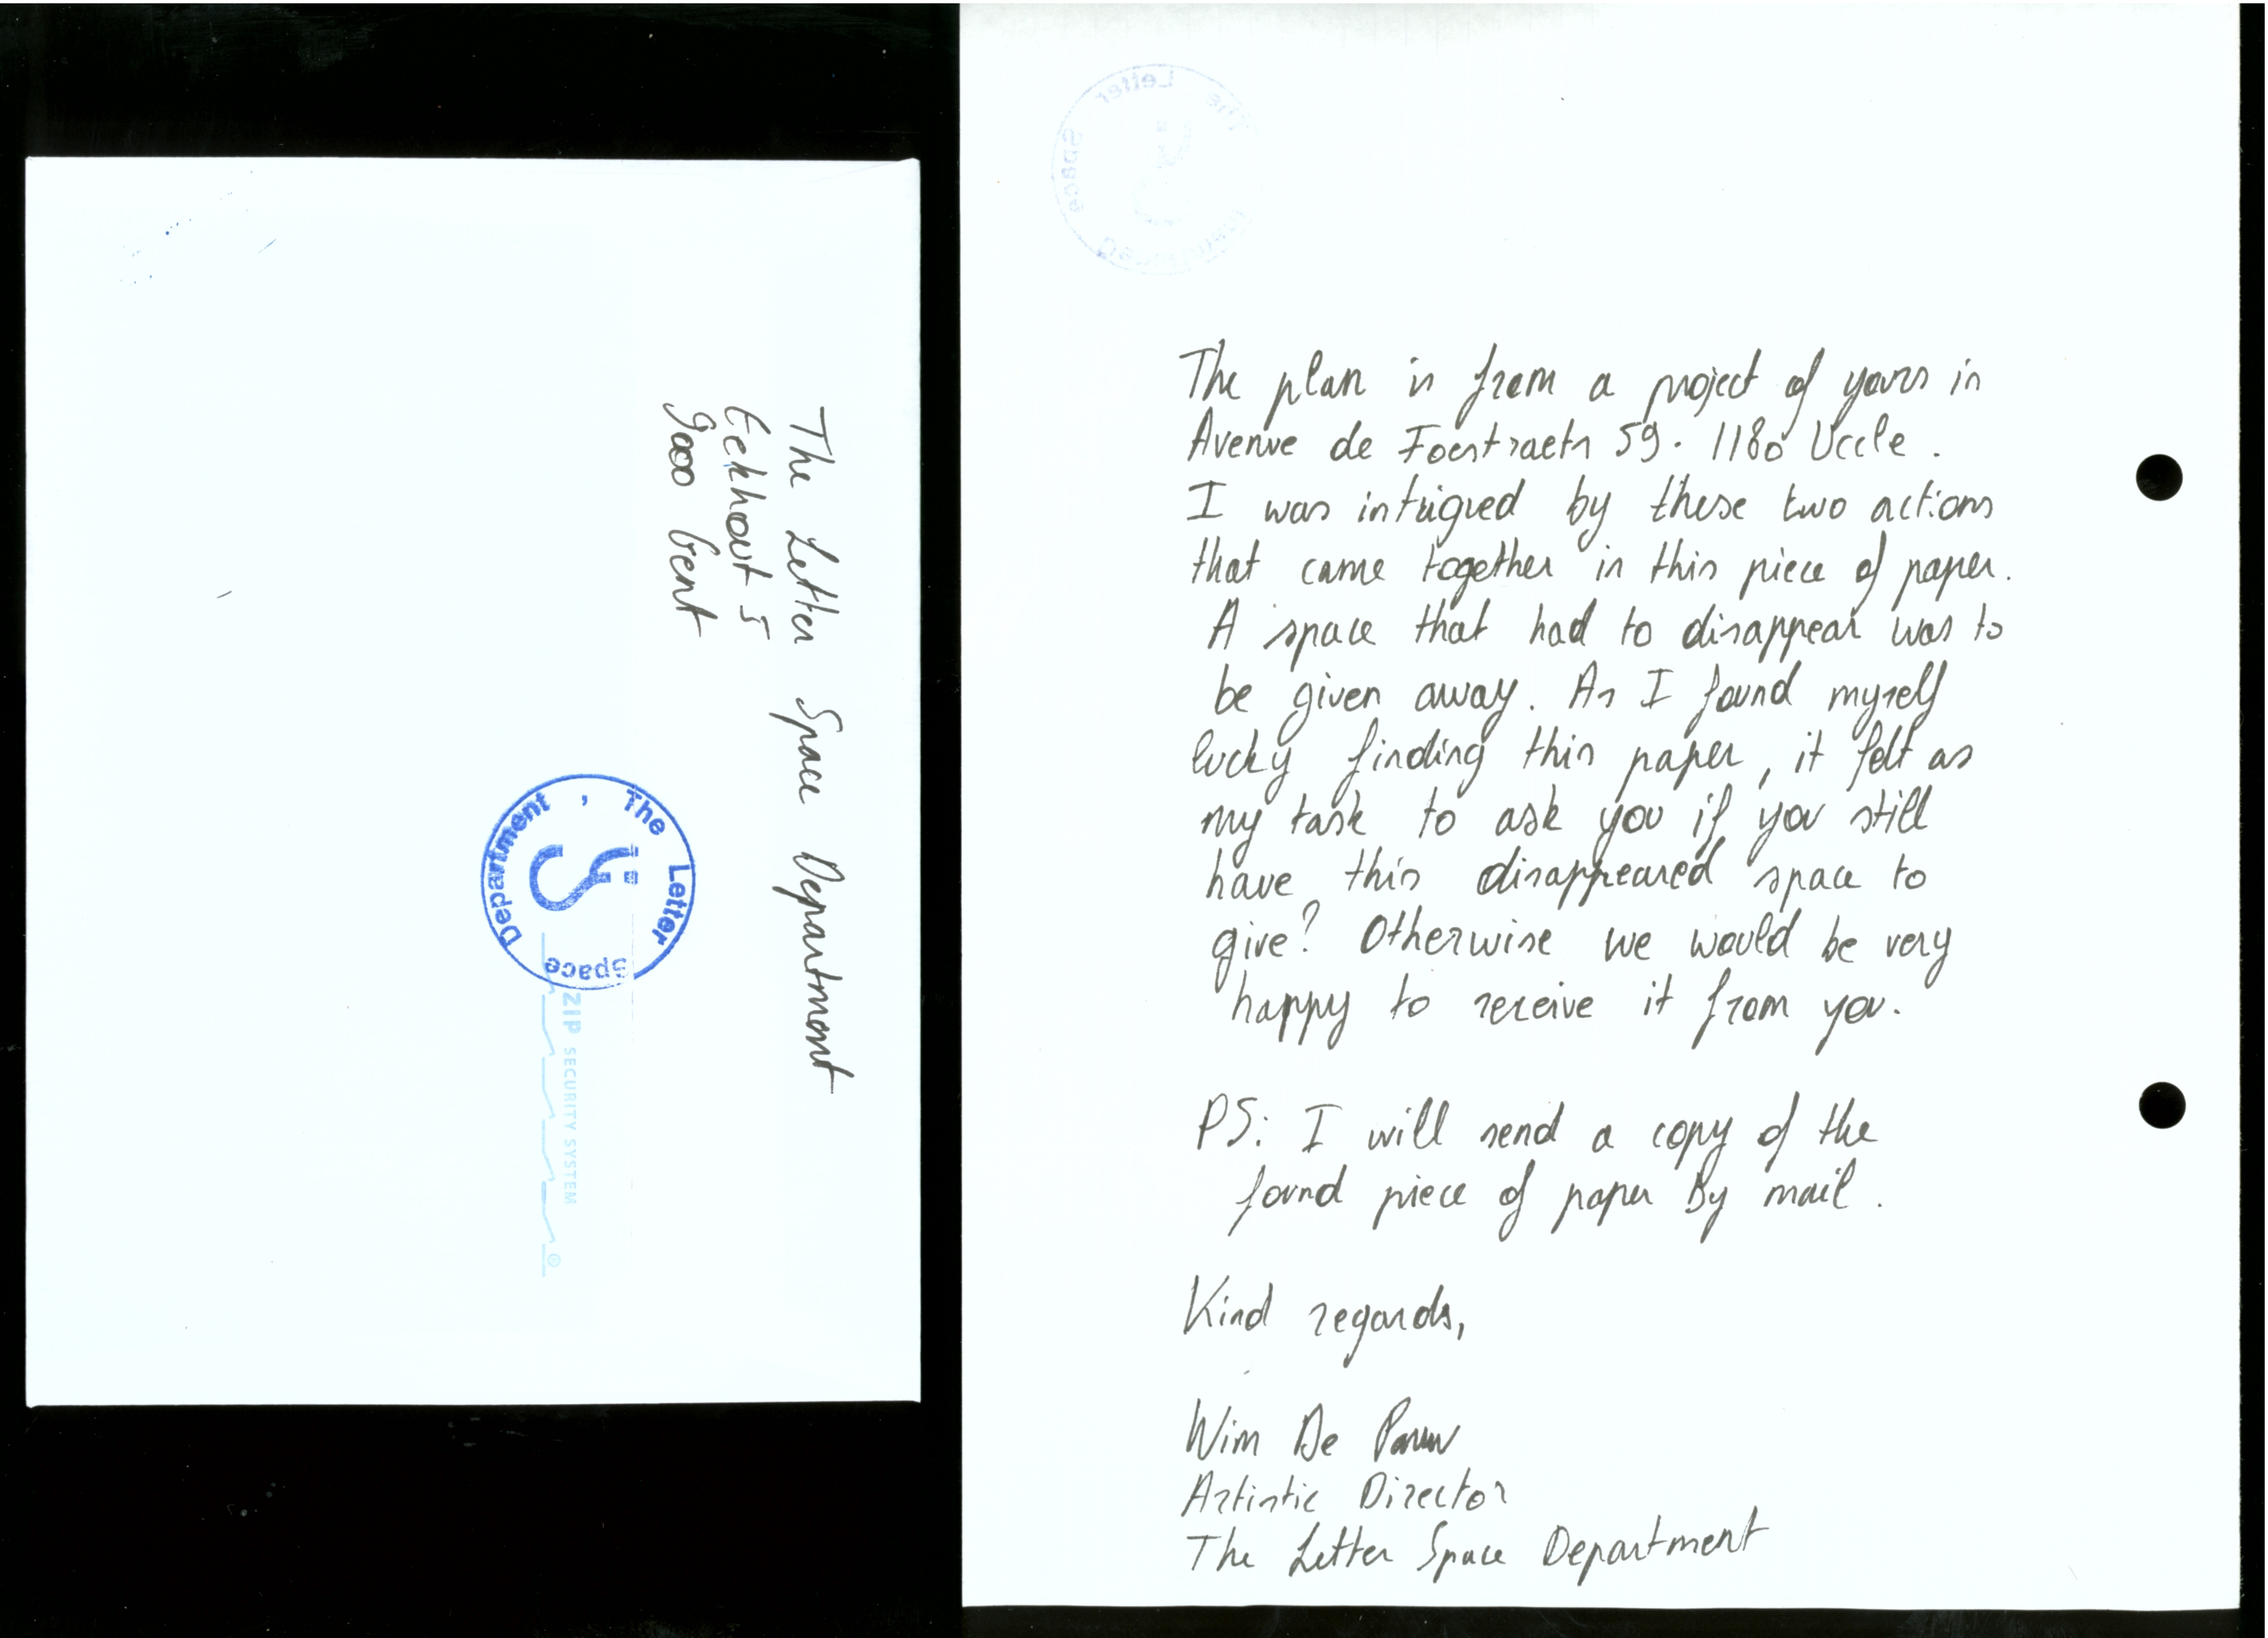 The Letter Space Department
Eekhout 5
9000 Gent
The Letter Space Department,
ZIP SECURITY SYSTEM
The Letter Space
The plan is from a project of yours in
Avenue de Foestraets 59. 1180 Uccle.
I was intrigued by these two actions
that came together in this piece of paper.
A space that had to disappear was to
be given away. As I found myself
lucky finding this paper, it felt as
my task to ask you if you still
have this disappeared space to
give? Otherwise we would be very
happy to receive it from you.
PS: I will send a copy of the
found piece of paper By mail.
Kind regards,
Wim De Pauw
Artistic Director
The Letter Space Department